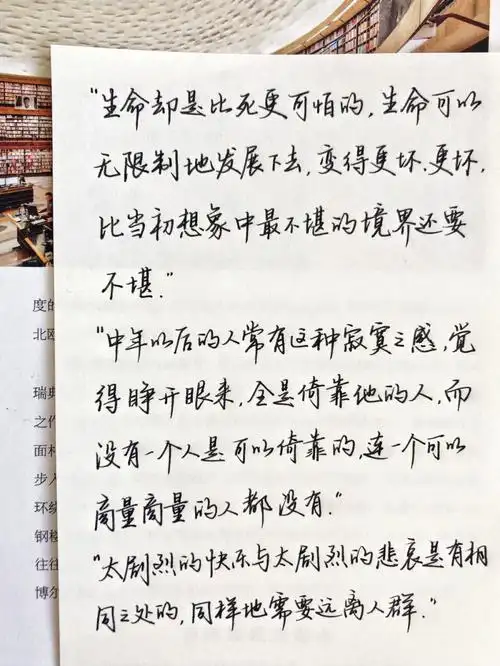 "生命却是比死更可怕的,生命可以
无限制地发展下去,变得更坏.更坏,
比当初想象中最不堪的境界还要
不堪."
"中年以后的人常有这种寂寞之感,觉
得睁开眼来,全是倚靠他的人,而
没有一个人是可以倚靠的,连一个可以
商量商量的人都没有."
"太剧烈的快乐与太剧烈的悲哀是有相
同之处的,同样地需要远离人群."
度的
北欧
瑞典
之作
步入
环绕
钢楼
往往
博尔